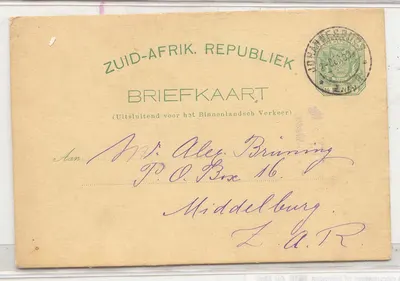 ZUID-AFRIK. REPUBLIEK
JOHANNESBURG
BRIEFKAART
(Uitsluitend voor het Binnenlandsch Verkeer)
Aan
Mr. Alex. Brüning
P.O. Box 16.
Middelburg.
Z. A. R.